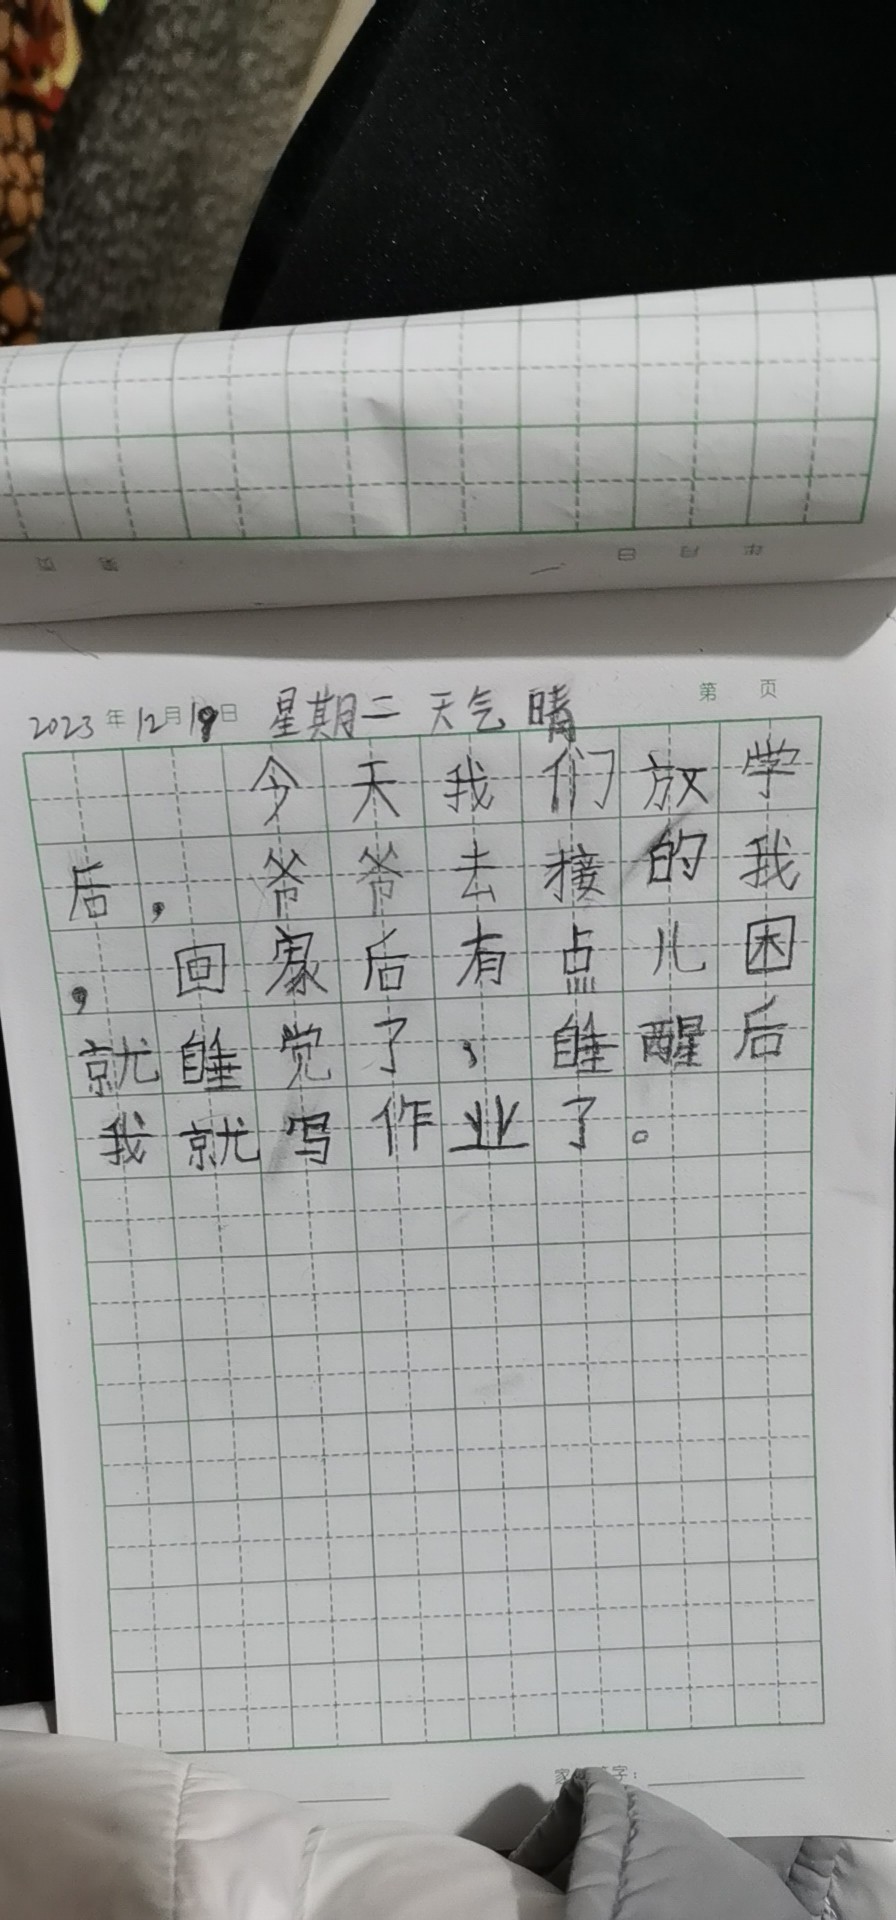 页 第 日 月 年
第 页
2023年12月19日 星期二 天气 晴
今天我们放学
后，爷爷去接的我
，回家后有点儿困
就睡觉了，睡醒后
我就写作业了。
家 字：